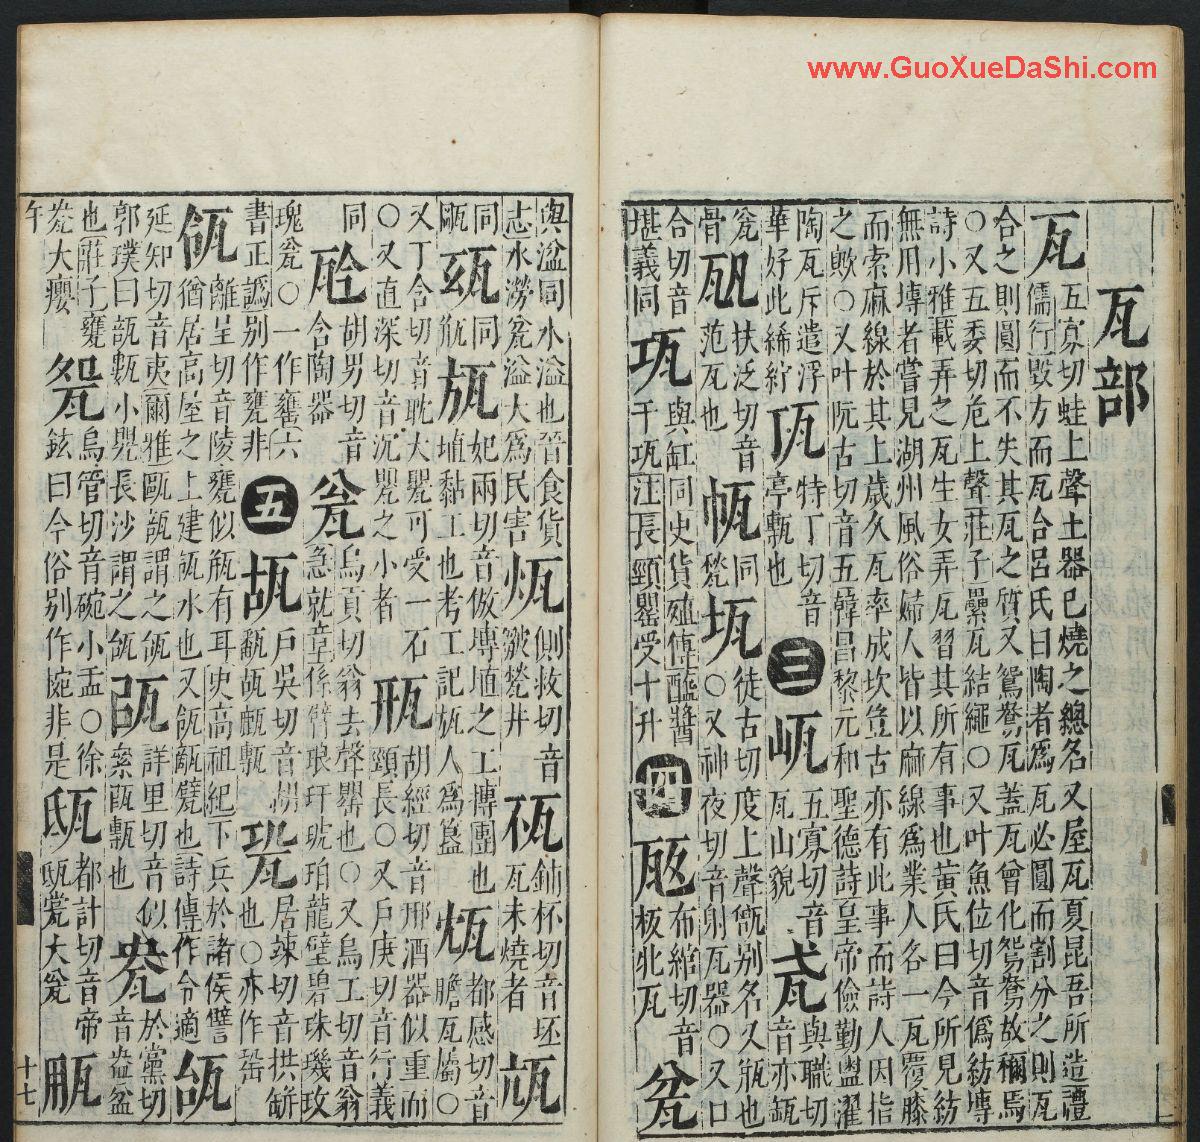 www.GuoXueDaShi.com
瓦部
瓦五寡切蛙上聲土器已燒之總名又屋瓦夏昆吾所造禮
儒行毀方而瓦合呂氏曰陶者爲瓦必圓而割分之則瓦
合之則圓而不失其瓦之質又鴛鴦瓦蓋瓦曾化鴛鴦故稱焉
○又五委切危上聲莊子纍瓦結繩○又叶魚位切音僞紡塼
詩小雅載弄之瓦生女弄瓦習其所有事也黃氏曰今所見紡
無用塼者嘗見湖州風俗婦人皆以麻線爲業人各一瓦覆膝
而索麻線於其上歲久瓦率成坎豈古亦有此事而詩人因指
之歟○又叶阮古切音五韓昌黎元和聖德詩皇帝儉勤盥濯
陶瓦斥遣浮
華好此絺紵
特丁切音
亭甎也
三
五寡切音
瓦山貌
與職切
音亦瓿
瓮
扶泛切音
范瓦也
同
甃
徒古切度上聲甋別名又瓶也
○又神夜切音射瓦器○又口
合切音
堪義同
與缸同史貨殖傳醯醬
千瓨注長頸罌受十升
四
瓪布綰切音
板牝瓦
瓮
與盆同水溢也晉食貨
志水澇瓮溢大爲民害
側救切音
皺甃井
鋪杯切音坯
瓦未燒者
同
甌
同
瓶
瓬妃兩切音倣塼埴之工摶團也
埴黏工也考工記瓬人爲簋
都感切音
膽瓦屬○
又丁含切音耽大甖可受一石
○又直深切音沉甖之小者
胡經切音邢酒器似重而
頸長○又戶庚切音行義
同
胡男切音
含陶器
瓮烏貢切翁去聲罌也○又烏工切音翁
急就章係臂琅玕琥珀龍璧碧珠璣玫
瑰瓮○一作罋六
書正譌別作甕非
五
瓳戶吳切音胡
瓳甎
居竦切音拱缾
也○亦作
瓴離呈切音陵甕似瓶有耳史高祖紀下兵於諸侯譬
猶居高屋之上建瓴水也又瓴甋甓也詩傳作令適
瓵
延知切音夷爾雅甌瓿謂之瓵
郭璞曰瓿甊小甖長沙謂之瓵
詳里切音似
甎也
瓽於黨切
音盎盆
也莊子甕
大癭
烏管切音碗小盂○徐
鉉曰今俗別作椀非是
都計切音帝
大瓮
午
十七